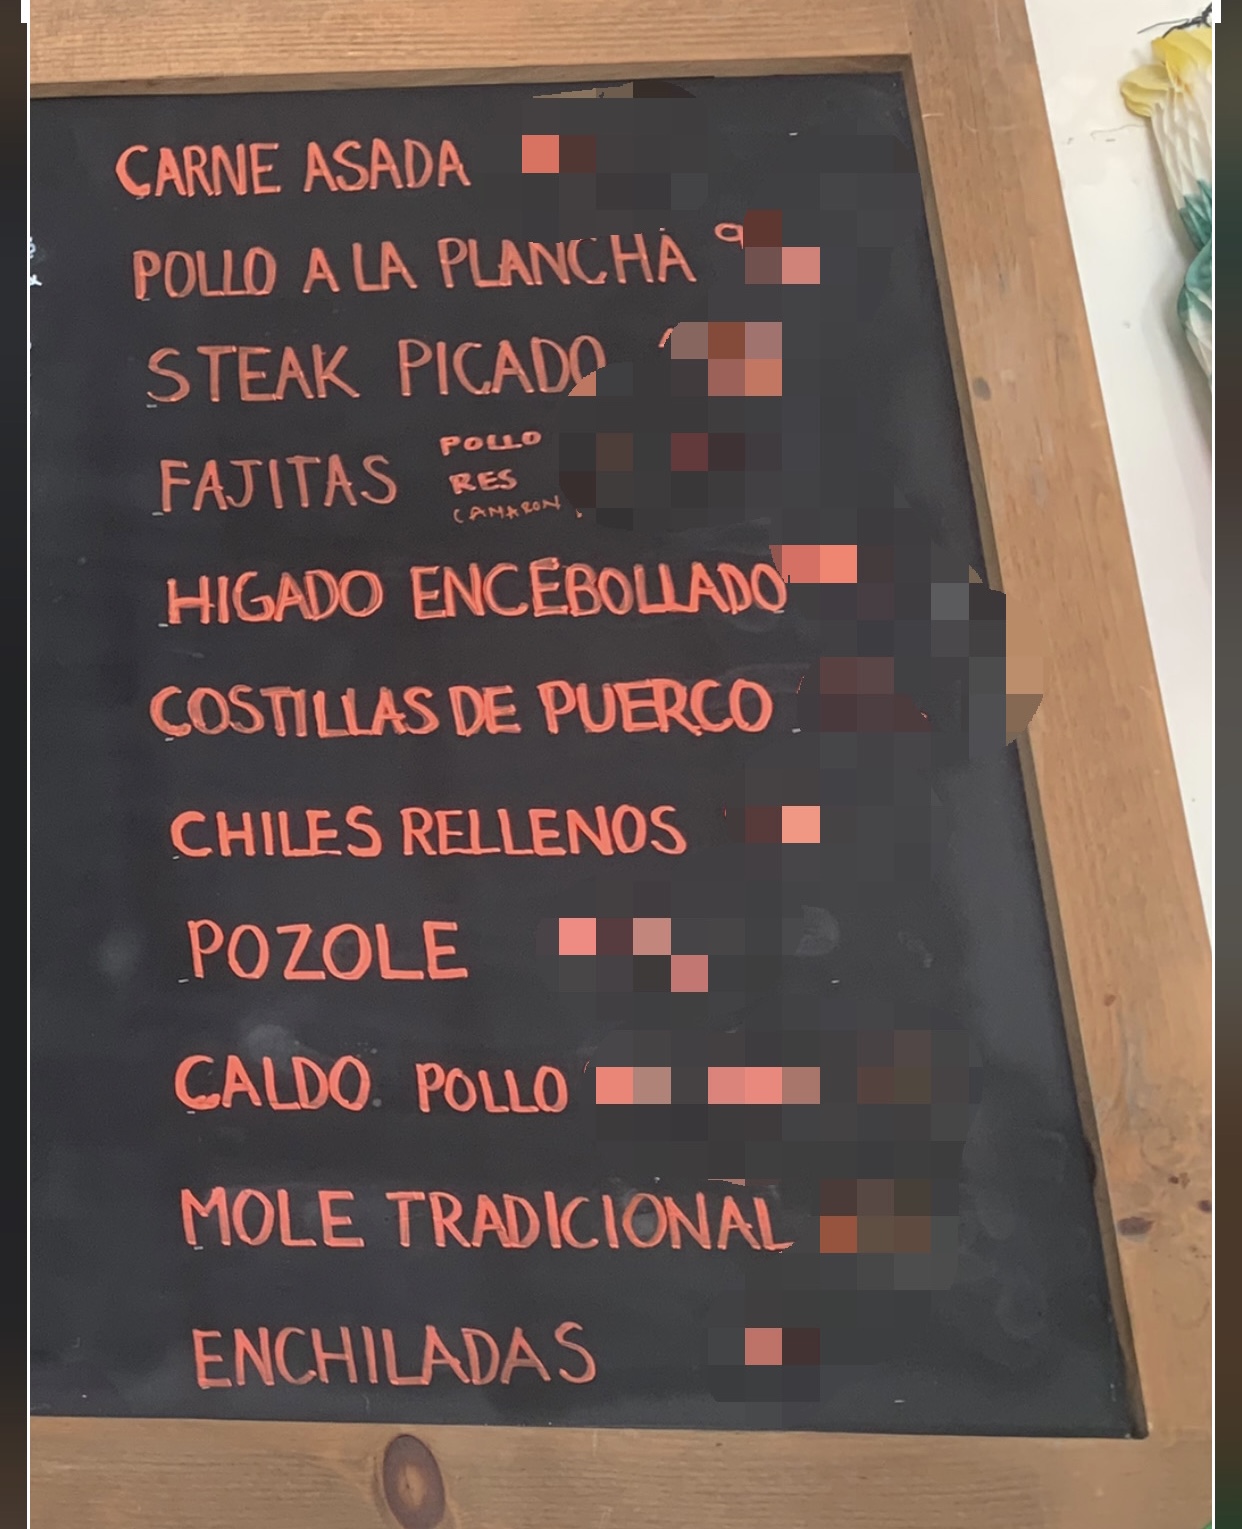 CARNE ASADA
POLLO A LA PLANCHA
STEAK PICADO
FAJITAS POLLO
RES
CAMARON
HIGADO ENCEBOLLADO
COSTILLAS DE PUERCO
CHILES RELLENOS
POZOLE
CALDO POLLO
MOLE TRADICIONAL
ENCHILADAS